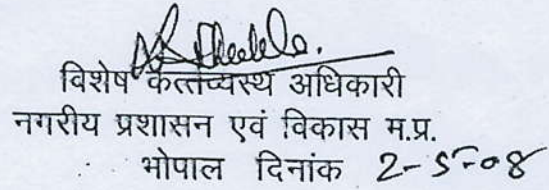 विशेष कर्त्तव्यस्थ अधिकारी
नगरीय प्रशासन एवं विकास म.प्र.
भोपाल दिनांक 2-5-08